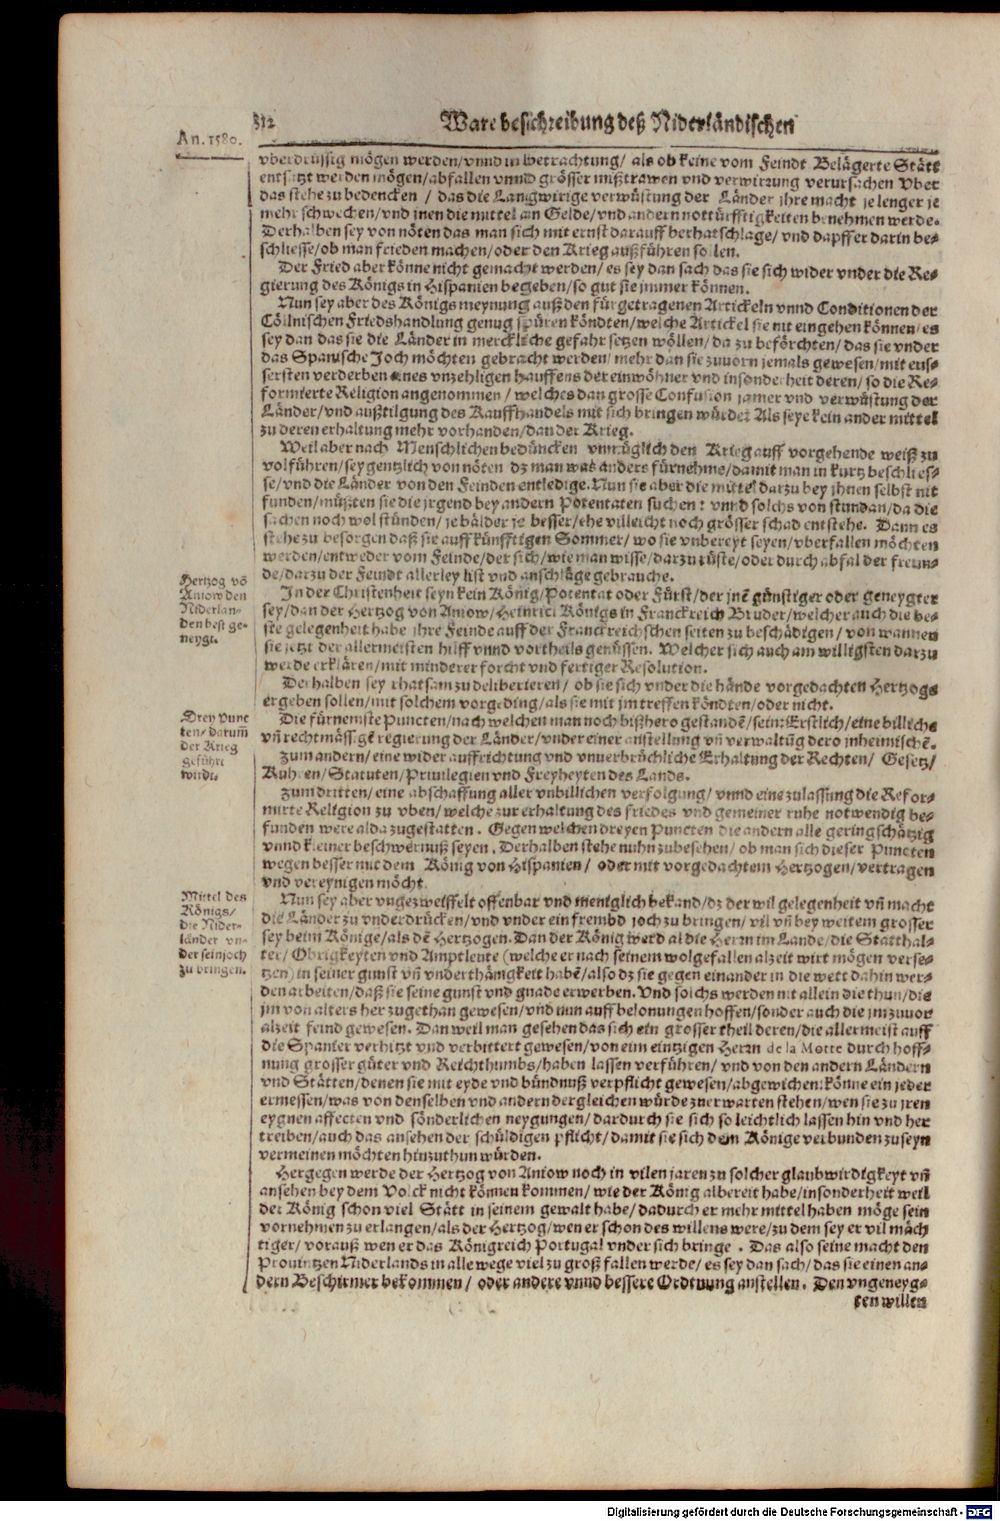 312
Ware beschreibung deß Niderländischen
An. 1580.
vberdrüssig mögen werden/vnnd in betrachtung/ als ob keine vom Feindt Belägerte Stätt
entsatzt werden mögen/abfallen vnnd grösser mißtrawen vnd verwirrung verursachen Vber
das stehe zu bedencken / das die Langwirige verwüstung der Länder jhre macht je lenger je
mehr schwechen/vnd jnen die mittel an Gelde/vnd andern nottürfftigkeiten benehmen werde.
Derhalben sey von nöten das man sich mit ernst darauff berhatschlage/ vnd dapffer darin be-
schliesse/ob man frieden machen/oder den Krieg außführen sollen.
Der Fried aber könne nicht gemacht werden/ es sey dan sach das sie sich wider vnder die Re-
gierung des Königs in Hispanien begeben/so gut sie jmmer können.
Nun sey aber des Königs meynung auß den fürgetragenen Artickeln vnnd Conditionen der
Cöllnischen Friedshandlung genug spüren köndten/welche Artickel sie nit eingehen können/ es
sey dan das sie die Länder in merckliche gefahr setzen wöllen/ da zu beförchten/ das sie vnder
das Spanische Joch möchten gebracht werden/ mehr dan sie zuuorn jemals gewesen/mit eus-
sersten verderben eines vnzehligen hauffens der einwöhner vnd insonderheit deren/ so die Re-
formierte Religion angenommen / welches dan grosse Confusion jamer vnd verwüstung der
Länder/vnd außtilgung des Kauffhandels mit sich bringen würde: Als seye kein ander mittel
zu deren erhaltung mehr vorhanden/dan der Krieg.
Weil aber nach Menschlichen bedüncken vnmüglich den Krieg auff vorgehende weiß zu
volführen/sey gentzlich von nöten dz man was anders fürnehme/damit man in kurtz beschlies-
se/vnd die Länder von den Feinden entledige. Nun sie aber die mittel darzu bey jhnen selbst nit
funden/müßten sie die jrgend bey andern Potentaten suchen: vnnd solchs von stundan/da die
sachen noch wol stünden/ je bälder je besser/ehe villeicht noch grösser schad entstehe. Dann es
stehe zu besorgen daß sie auff künfftigen Sommer/ wo sie vnbereyt seyen/vberfallen möchten
werden/entweder vom Feinde/der sich/wie man wisse/darzu rüste/oder durch abfal der freun-
de/darzu der Feindt allerley list vnd anschläge gebrauche.
Hertzog võ
Aniow den
Niderlan-
den best ge-
neygt.
In der Christenheit seyn kein König/Potentat oder Fürst/der jnẽ günstiger oder geneygter
sey/dan der Hertzog von Aniow/Heinrici Königs in Franckreich Bruder/welcher auch die be-
ste gelegenheit habe jhre Feinde auff der Franckreichschen seiten zu beschädigen / von wannen
sie jetzt der allermeisten hilff vnnd vortheils genüssen. Welcher sich auch am willigsten darzu
werde erklären/mit minderer forcht vnd fertiger Resolution.
Derhalben sey rhatsam zu deliberieren/ ob sie sich vnder die hände vorgedachten Hertzogs
ergeben sollen/mit solchem vorgeding/als sie mit jm treffen köndten/oder nicht.
Drey Punc
ten/ darum̃
der Krieg
geführt
wirdt.
Die fürnemste Puncten/nach welchen man noch bißhero gestandẽ/sein: Erstlich/eine billiche
vñ rechtmässigẽ regierung der Länder/vnder einer anstellung vñ verwaltũg dero jnheimischẽ.
Zum andern/eine wider auffrichtung vnd vnuerbrüchliche Erhaltung der Rechten/ Gesetz/
Kuhren/Statuten/Priuilegien vnd Freyheyten des Lands.
Zum dritten/eine abschaffung aller vnbillichen verfolgung/ vnnd eine zulassung die Refor-
mirte Religion zu vben/welche zur erhaltung des friedes vnd gemeiner ruhe notwendig be-
funden were alda zugestatten. Gegen welchen dreyen Puncten die andern alle geringschätzig
vnnd kleiner beschwernuß seyen. Derhalben stehe nuhn zubesehen/ ob man sich dieser Puncten
wegen besser mit dem König von Hispanien/ oder mit vorgedachtem Hertzogen/vertragen
vnd vereynigen möcht.
Mittel des
Königs/
die Nider-
länder vn-
der sein joch
zu bringen.
Nun sey aber vngezweiffelt offenbar vnd meniglich bekand/dz der wil gelegenheit vñ macht
die Länder zu vnderdrücken/vnd vnder ein frembd joch zu bringen/ vil vñ bey weitem grosser
sey beim Könige/als dẽ Hertzogen. Dan der König werd al die Herrn im Lande/die Statthal-
ter/ Obrigkeyten vnd Amptleute (welche er nach seinem wolgefallen alzeit wirt mögen verse-
tzen) in seiner gunst vñ vnderthänigkeit habẽ/also dz sie gegen einander in die wett dahin wer-
den arbeiten/daß sie seine gunst vnd gnade erwerben. Vnd solchs werden nit allein die thun/die
jm von alters her zugethan gewesen/vnd nun auff belonungen hoffen/sonder auch die jm zuuor
alzeit feind gewesen. Dan weil man gesehen das sich ein grosser theil deren/die allermeist auff
die Spanier verhitzt vnd verbittert gewesen/von eim eintzigen Herrn de la Motte durch hoff-
nung grosser güter vnd Reichthumbs/haben lassen verführen/ vnd von den andern Ländern
vnd Stätten/denen sie mit eyde vnd bündnuß verpflicht gewesen/abgewichen: könne ein jeder
ermessen/was von denselben vnd andern dergleichen würde zuerwarten stehen/wen sie zu jren
eygnen affecten vnd sönderlichen neygungen/dardurch sie sich so leichtlich lassen hin vnd her
treiben/auch das ansehen der schüldigen pflicht/damit sie sich dem Könige verbunden zuseyn
vermeinen möchten hinzuthun würden.
Hergegen werde der Hertzog von Aniow noch in vilen jaren zu solcher glaubwirdigkeyt vñ
ansehen bey dem Volck nicht können kommen/ wie der König albereit habe/insonderheit weil
der König schon viel Stätt in seinem gewalt habe/dadurch er mehr mittel haben möge sein
vornehmen zu erlangen/als der Hertzog/wen er schon des willens were/zu dem sey er vil mäch
tiger/ vorauß wen er das Königreich Portugal vnder sich bringe . Das also seine macht den
Prouintzen Niderlands in alle wege viel zu groß fallen werde/ es sey dan sach/das sie einen an-
dern Beschirmer bekommen/ oder andere vnnd bessere Ordnung anstellen. Den vngeneyg-
ten willen
Digitalisierung gefördert durch die Deutsche Forschungsgemeinschaft - DFG